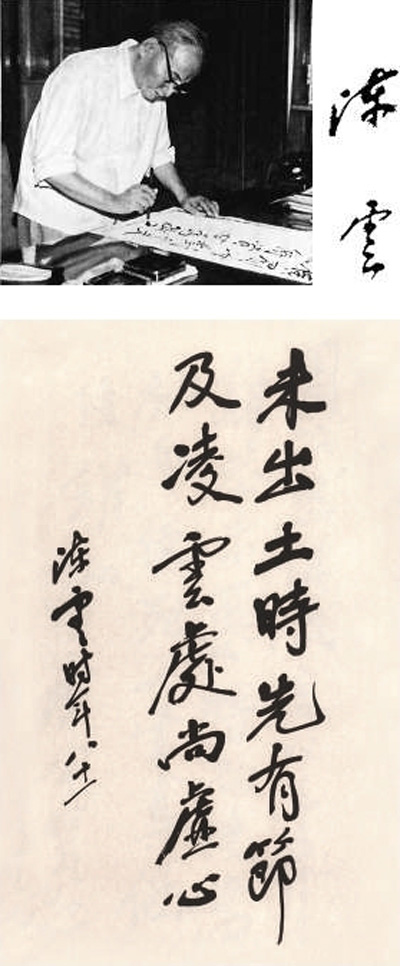 陈雲
未出土時先有節
及凌雲處尚虛心
陈雲时年八十一